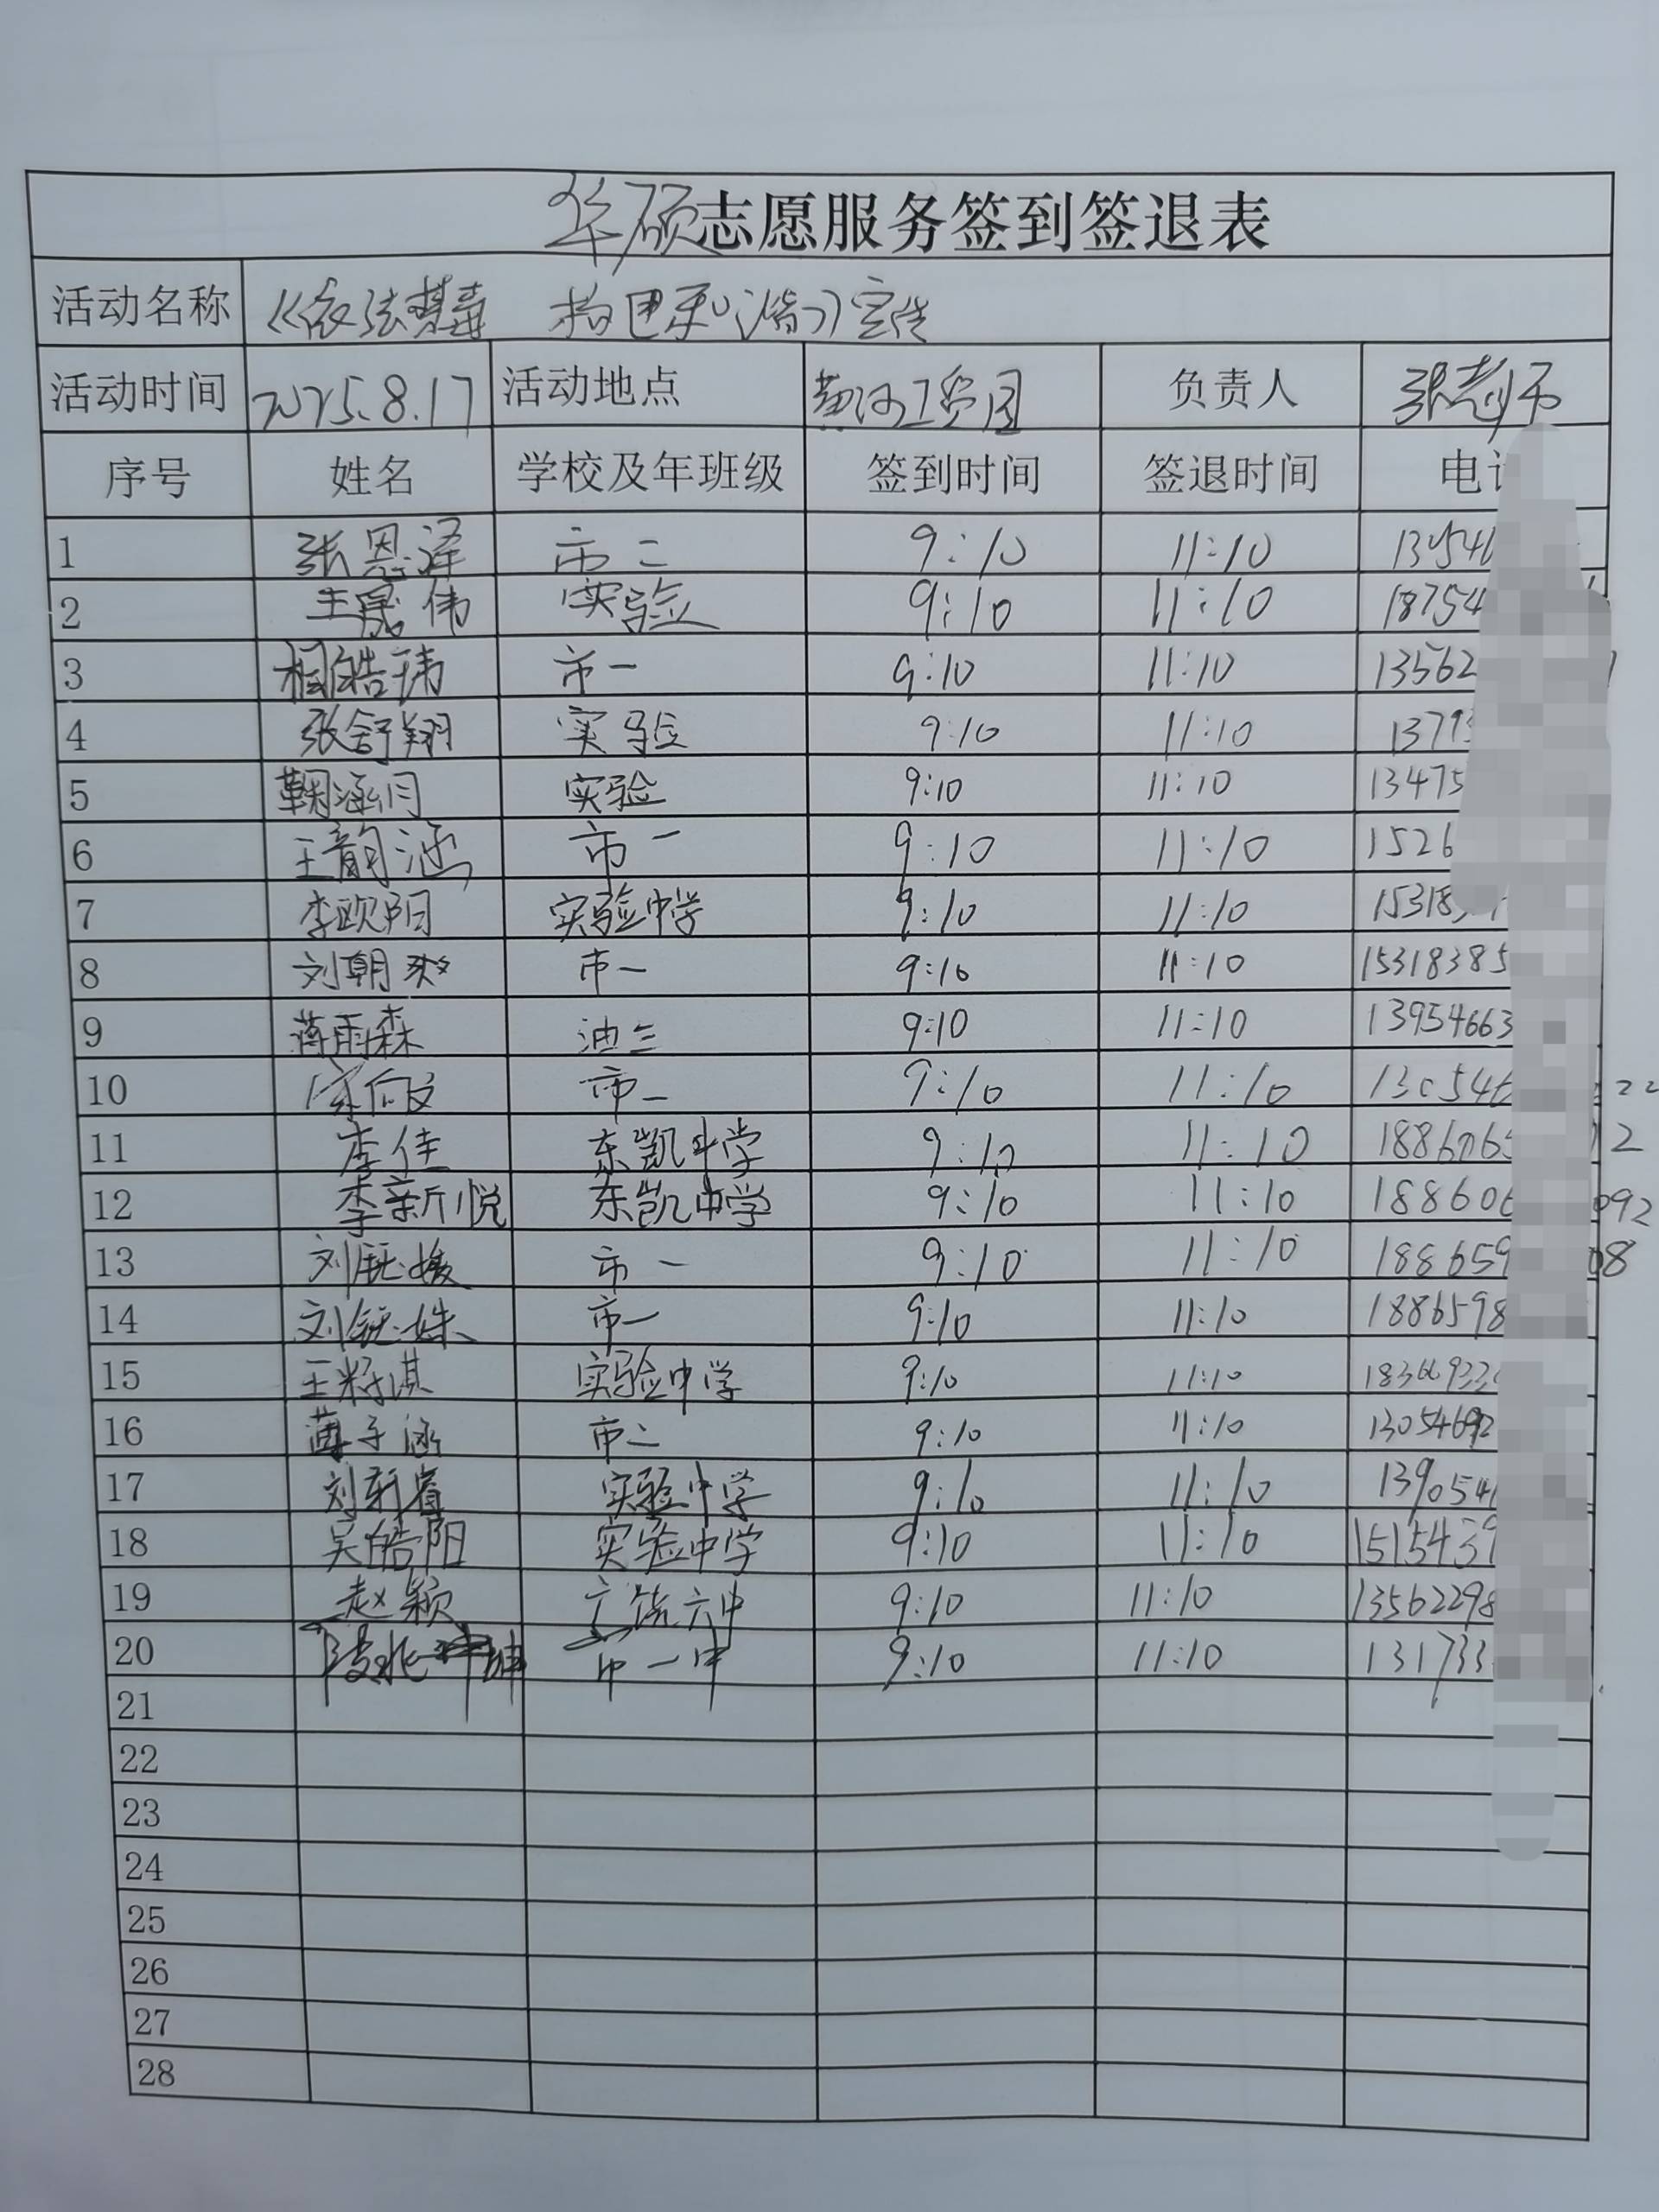 华硕志愿服务签到签退表
活动名称 《依法禁毒 构建和谐》宣传
活动时间 2025.8.17 活动地点 黄河工贸园 负责人 张老师
序号 姓名 学校及年班级 签到时间 签退时间 电
1 张恩泽 市二 9:10 11:10
2 王晟伟 实验 9:10 11:10 18754
3 相皓玮 市一 9:10 11:10 13562
4 张舒翔 实验 9:10 11:10 1379
5 鞠涵月 实验 9:10 11:10 13475
6 王韵涵 市一 9:10 11:10 1526
7 李欧阳 实验中学 9:10 11:10 15318
8 刘朝 市一 9:10 11:10 15318385
9 蒋雨森 油三 9:10 11:10 13954663
10 市一 9:10 11:10 130546 22
11 李佳 东凯中学 9:10 11:10 2
12 李新悦 东凯中学 9:10 11:10 188606 092
13 刘钰媛 市一 9:10 11:10 188659 08
14 刘钰姝 市一 9:10 11:10 1886598
15 王 淇 实验中学 9:10 11:10
16 薄子涵 市二 9:10 11:10
17 刘 睿 实验中学 9:10 11:10 139054
18 吴皓阳 实验中学 9:10 11:10 1515439
19 赵颖 广饶六中 9:10 11:10 13562298
20 坤 市一中 9:10 11:10 131733
21
22
23
24
25
26
27
28